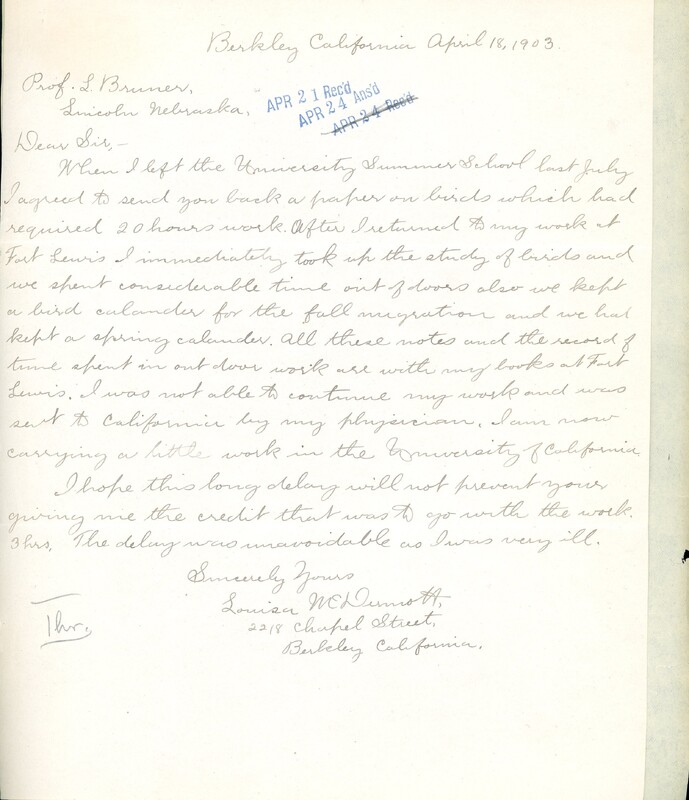 Berkley California April 18, 1903.
Prof. L. Bruner,
Lincoln Nebraska,
APR 21 Rec'd,
APR 24 Ans'd
APR 24 Rec'd
Dear Sir,-
When I left the University Summer School last July
I agreed to send you back a paper on birds which had
required 20 hours work. After I returned to my work at
Fort Lewis I immediately took up the study of birds and
we spent considerable time out of doors also we kept
a bird calander for the fall migration and we had
kept a spring calander. All these notes and the record of
time spent in out door work are with my books at Fort
Lewis. I was not able to continue my work and was
sent to California by my physician. I am now
carrying a little work in the University of California
I hope this long delay will not prevent your
giving me the credit that was to go with the work.
3 hrs. The delay was unavoidable as I was very ill.
Sincerely Yours
Louisa McDermott,
2218 Chapel Street,
Berkley California.
1 hr.